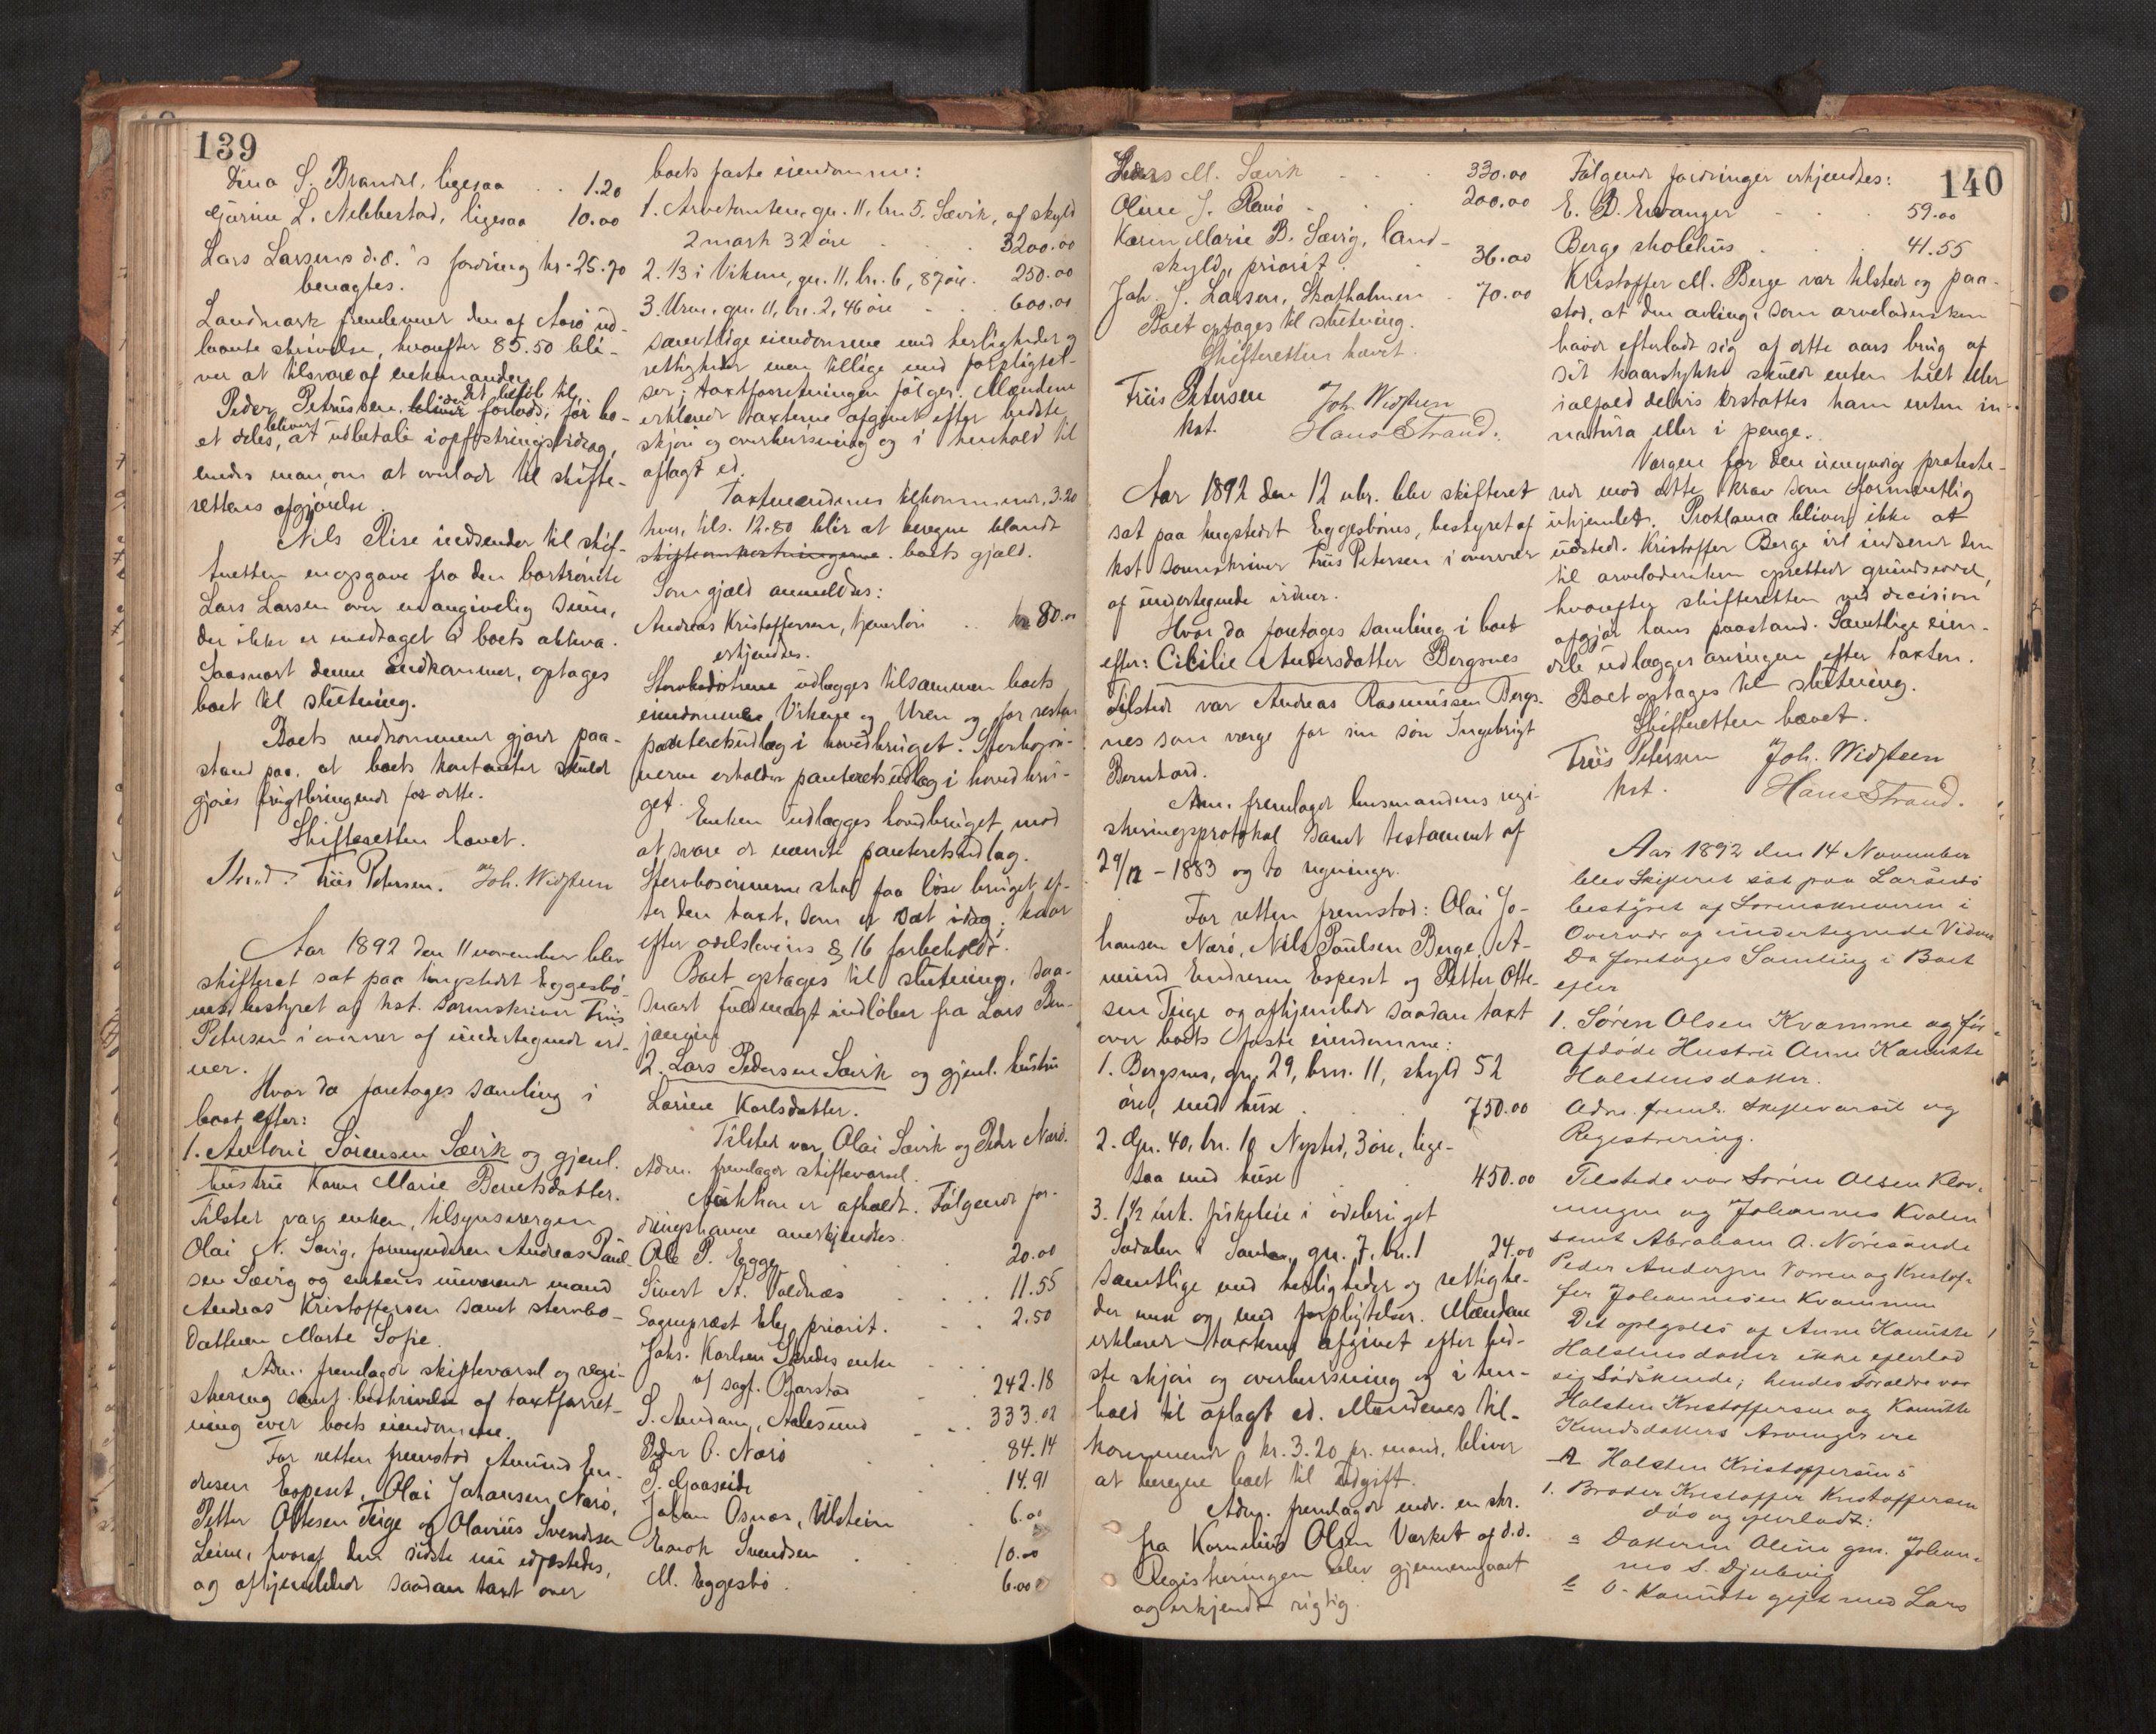 139
Dina S. Brandal, ligesaa . . 1.20
Gjurine L. Nebbestad, ligesaa 10.00
Lars Larsens d.æ.'s fordring kr. 25.70
benægtes.
Landmark fremleverer den af Aarø ud-
laante skrivelse, hvorefter 85.50 bli-
ver at tilsvare af enkemanden
Peder Petrussen. forlods, før bo-
et deles, bliver at udbetale i opfostringsbidrag,
enedes man om at overlade til skifte-
rettens afgjørelse.
Nils Riise indsender til skif-
teretten en opgave fra den bortrømte
Lars Larsen over en angivelig sum,
der ikke er medtaget i boets aktiva.
Saasnart denne indkommer, optages
boet til slutning.
Boets vedkommende gjorde paa-
stand paa, at boets kontanter skulde
gjøres frugtbringende for dette.
Skifteretten hævet.
Friis Petersen. Joh. Widsteen
Aar 1892 den 11 november blev
skifteret sat paa tingstedet Eggesbø-
nes, bestyret af kst. sorenskriver Friis
Petersen i overvær af undertegnede vid-
ner.
Hvor da foretages samling i
boet efter:
1. Antoni Sørensen Sævik og gjenl.
hustru Karen Marie Berntsdatter.
Tilsted var enken, tilsynsvergen
Olai N. Sævig, formynderen Andreas Paul-
sen Sævig og enkens nuværende mand
Andreas Kristoffersen samt stervbo-
datteren Marte Sofie.
Adm. fremlagde skiftevarsel og regi-
strering samt beskrivelse af taxtforret-
ning over boets eiendomme.
For retten fremstod Amund En-
dresen Espeset, Olai Johansen Nærø,
Petter Ottesen Teige og Olavius Svendsen
Leine, hvoraf den sidste nu edfæstedes,
og afhjemlede saadan taxt over
boets faste eiendomme:
1. Arvetomten, gn. 11, brn. 5. Sævik, af skyld
2 mark 32 øre . . . 3200.00
2. 1/3 i Vikene, gn. 11, br. 6, 87 øre. 250.00
3. Uren, gn. 11, br. 2, 46 øre . . 600.00
samtlige eiendomme med herligheder og
rettigheder men tillige med forpligtel-
ser; taxtforretningen følger. Mændene
erklærede taxterne afgivet efter bedste
skjøn og overbevisning og i henhold til
aflagt ed.
Taxtmændenes tilkommende, 3.20
hver, tils. 12.80 blir at beregne blandt
skifteomkostningerne. boets gjæld.
Som gjæld anmeldtes:
Andreas Kristoffersen, tjenerløn . . kr 80.00
erkjendtes.
Stervbodøtrene udlægges tilsammen boets
eiendomme Vikene og Uren og for resten
panteretsudlæg i hovedbruget. Stervbosøn-
nerne erholder panteretsudlæg i hovedbru-
get. Enken udlægges hovedbruget mod
at svare de nævnte panteretsudlæg.
Stervbosønnerne skal faa løse bruget ef-
ter den taxt, som er sat idag; kaar
efter odelslovens § 16 forbeholdt.
Boet optages til slutning, saa-
snart fuldmagt indløber fra Lars Ben-
jamin
2. Lars Pedersen Sævik og gjenl. hustru
Lorine Karlsdatter.
Tilsted var Olai Sævik og Peder Nærø.
Adm. fremlagde skiftevarsel.
Auktion er afholdt. Følgende for-
dringshavere anerkjendtes.
Ole P. Egge . . 20.00
Sivert A. Voldnæs . . . . 11.55
Sogneprest Eeg, priorit. . . 2.50
Johs. Karlsen Skredes enke
v/ sagf. Bjarstad . . 242.18
S. Aandam, Aalesund . . 333.02
Peder O. Nærø . . 84.14
P. Gjaaseide . 14.91
Johan Osnæs, Ulstein . 6.00
Enok Svendsen . . 10.00
M. Eggesbø . . 6.00
140
Lars M. Sævik . . . 330.00
Oline J. Ranø . . . 200.00
Karen Marie B. Sævig, land-
skyld, priorit. . 36.00
Joh. J. Larsen, Skotholmen . 70.00
Boet optages til slutning.
Skifteretten hævet.
Friis Petersen Joh. Widsteen
kst. Hans Strand.
Aar 1892 den 12 nbr. blev skifteret
sat paa tingstedet Eggesbønes, bestyret af
kst sorenskriver Friis Petersen i overvær
af undertegnede vidner.
Hvor da foretages samling i boet
efter: Cecilie Andersdatter Bergsnes
Tilstede var Andreas Rasmussen Bergs-
nes som værge for sin søn Ingebrigt
Bernhard.
Adm. fremlagde lensmandens regi-
streringsprotokol samt testament af
29/12 - 1883 og to regninger.
For retten fremstod: Olai Jo-
hansen Nærø, Nils Poulsen Berge, A-
mund Endresen Espeset og Petter Otte-
sen Teige og afhjemlede saadan taxt
over boets faste eiendomme:
1. Bergsnes, gn. 29, brn. 11, skyld 52
øre, med huse . . . 750.00
2. Gn. 40, br. 10 Nysted, 3 øre, lige-
saa med huse . . 450.00
3. 1 1/2 mk. fiskeleie i ødebruget
Sodalen i Sande, gn. 7, br. 1 24.00
samtlige med herligheder og rettighe-
der men og med forpligtelser. Mændene
erklærer taxterne afgivet efter bed-
ste skjøn og overbevisning og i hen-
hold til aflagt ed. Mændenes til-
kommende kr. 3.20 pr. mand, bliver
at beregne boet til udgift.
Adm. fremlagde endv. en skr.
fra Kornelius Olsen Værket af d.d.
Registreringen blev gjennemgaaet
og erkjendt rigtig.
Følgende fordringer erkjendtes:
E. D. Ervanger . . . 59.00
Berge skolehus . . . 41.55
Kristoffer M. Berge var tilstede og paa-
stod, at den avling, som arveladersken
havde efterladt sig af dette aars brug af
sit kaarstykke skulde enten helt eller
ialfald delvis erstattes ham enten in-
natura eller i penge.
Værgen for den umyndige proteste-
rede mod dette krav som formentlig
uhjemlet. Proklama bliver ikke at
udstede. Kristoffer Berge vil indsende den
til arveladersken oprettede grundseddel,
hvorefter skifteretten ved decision
afgjør hans paastand. Samtlige eien-
dele udlægges arvingen efter taxten.
Boet optages til slutning.
Skifteretten hævet.
Friis Petersen Joh. Widsteen
kst. Hans Strand.
Aar 1892 den 14 November
blev Skifteret sat paa Larsnes
bestyret af Sorenskriveren i
Overvær af undertegnede Vidner
Da foretages Samling i Boet
efter
1. Søren Olsen Kvamme og før-
afdøde Hustru Anne Kanutte
Halstensdatter.
Adm. freml. Skiftevarsel og
Registrering.
Tilstede var Søren Olsen Klov-
ningen og Johannes Kvalen
samt Abraham A. Nøresunde
Peder Andersen Vorren og Kristof-
fer Johannesen Kvammen
Det oplystes af Anne Kanutte
Halstensdatter ikke efterlod
sig Sødskende; hendes Forældre var
Halsten Kristoffersen og Kanutte
Knudsdatters Arvinger ere
A Halsten Kristoffersens
1. Broder Kristoffer Kristoffersen
død og efterladt:
a Datteren Oline gm. Johan-
nes S. Djubvig
b D- Kanutte gift med Lars